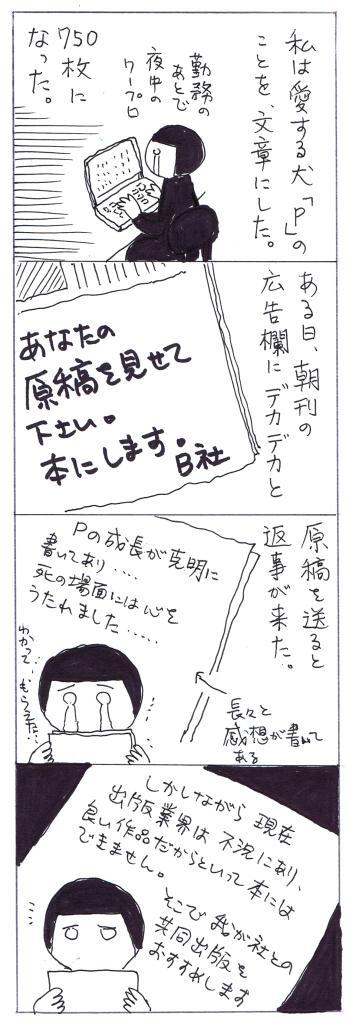 私は愛する犬「P」の
ことを、文章にした。
勤務の
あとで
夜中の
ワープロ
750
枚に
なった。
ある日、朝刊の
広告欄に デカデカと
あなたの
原稿を見せて
下さい。
本にします。
B社
原稿を送ると
返事が来た。
Pの成長が克明に
書いてあり....
死の場面には心を
うたれました.....
長々と
感想が書いて
ある
わかって..もらえた..
しかしながら 現在
出版業界は 不況にあり、
良い作品だからといって 本には
できません。
そこで 我が社との
共同出版を
おすすめします